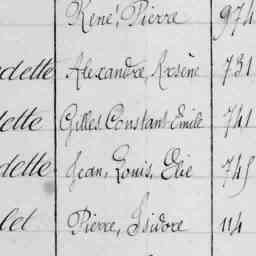 René, Pierre 974
dette Alexandre, Arsène 731
dette Gilles Constant Emile 741
dette Jean, Louis, Elie 745
let Pierre, Isidore 114